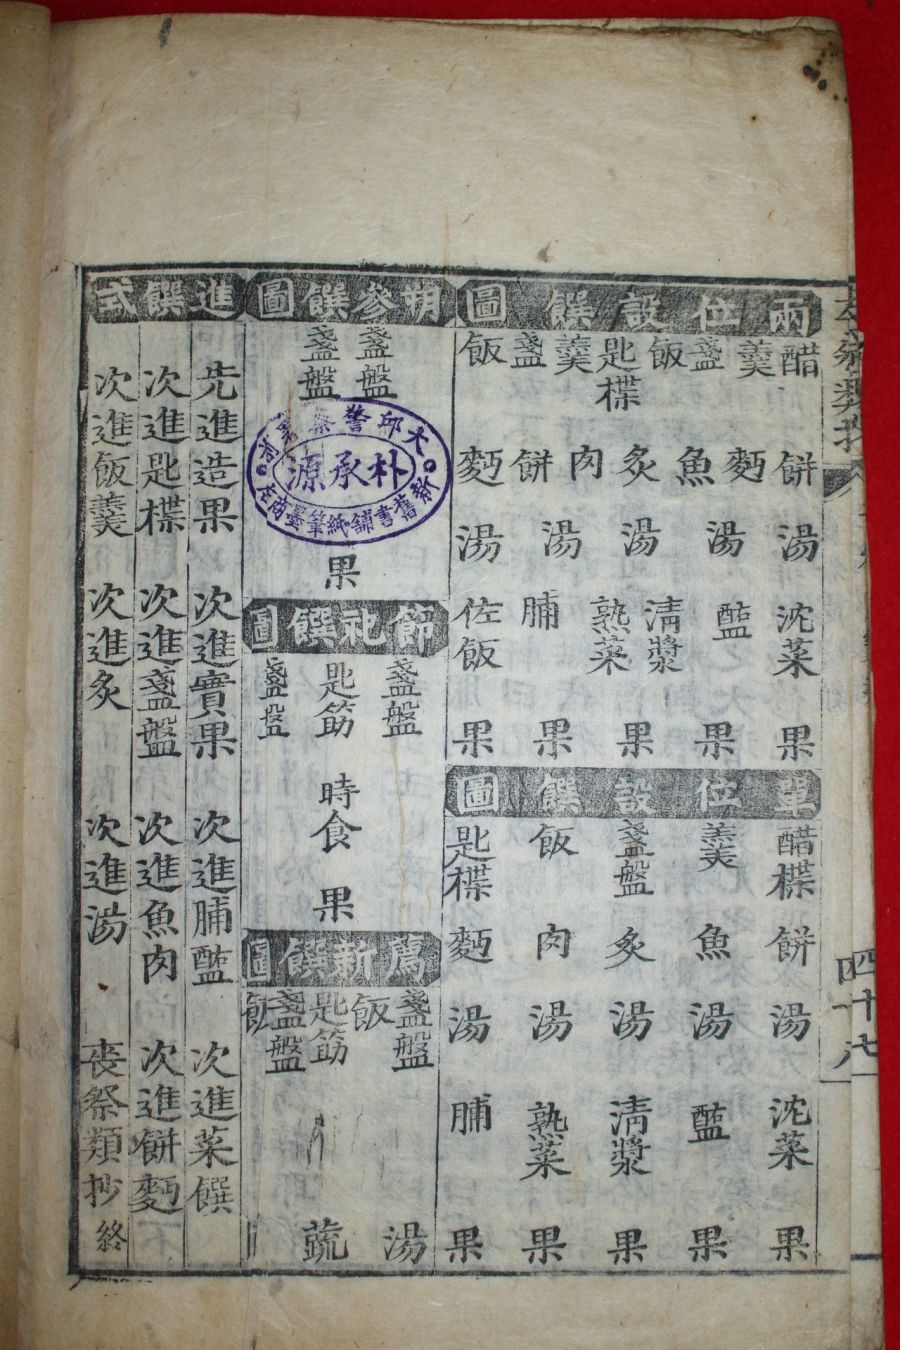 兩位設饌圖
飯 盞 羹 匙楪 飯 盞 羹 醋
麪 餅 肉 炙 魚 麪 餅
湯 湯 湯 湯 湯
佐飯 脯 熟菜 淸漿 醢 沈菜
果 果 果 果 果
單位設饌圖
匙楪 飯 盞盤 羹 醋楪
麪 肉 炙 魚 餅
湯 湯 湯 湯 湯
脯 熟菜 淸漿 醢 沈菜
果 果 果 果 果
朔參饌圖
盞盤 盞盤
果
節祀饌圖
盞盤 匙筯 盞盤
時食
果
薦新饌圖
飯 盞盤 匙筯 飯 盞盤
蔬 湯
進饌式
先進造果 次進實果 次進脯醢 次進菜饌
次進匙楪 次進盞盤 次進魚肉 次進餅麪
次進飯羹 次進炙 次進湯 喪祭類抄 終
大邱警察署前
朴承源
新舊書舖紙筆墨商店
四十七
八